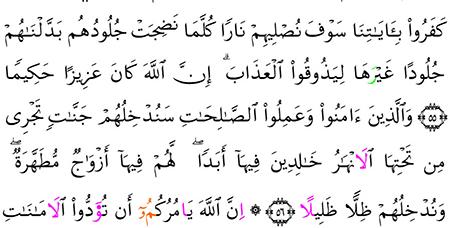 كَفَرُوا۟ بِـَٔايَـٰتِنَا سَوْفَ نُصْلِيهِمْ نَارًا كُلَّمَا نَضِجَتْ جُلُودُهُم بَدَّلْنَـٰهُمْ
جُلُودًا غَيْرَهَا لِيَذُوقُوا۟ الْعَذَابَ ۗ إِنَّ اللَّهَ كَانَ عَزِيزًا حَكِيمًا
۝٥٥ وَالَّذِينَ ءَامَنُوا۟ وَعَمِلُوا۟ الصَّـٰلِحَـٰتِ سَنُدْخِلُهُمْ جَنَّـٰتٍ تَجْرِى
مِن تَحْتِهَا الَانْهَـٰرُ خَـٰلِدِينَ فِيهَآ أَبَدًا ۖ لَّهُمْ فِيهَآ أَزْوَٰجٌ مُّطَهَّرَةٌ ۖ
وَنُدْخِلُهُمْ ظِلًّا ظَلِيلًا ۝٥٦ ۞ اِنَّ اللَّهَ يَامُرُكُمُۥٓ أَن تُؤَدُّوا۟ الَامَـٰنَـٰتِ